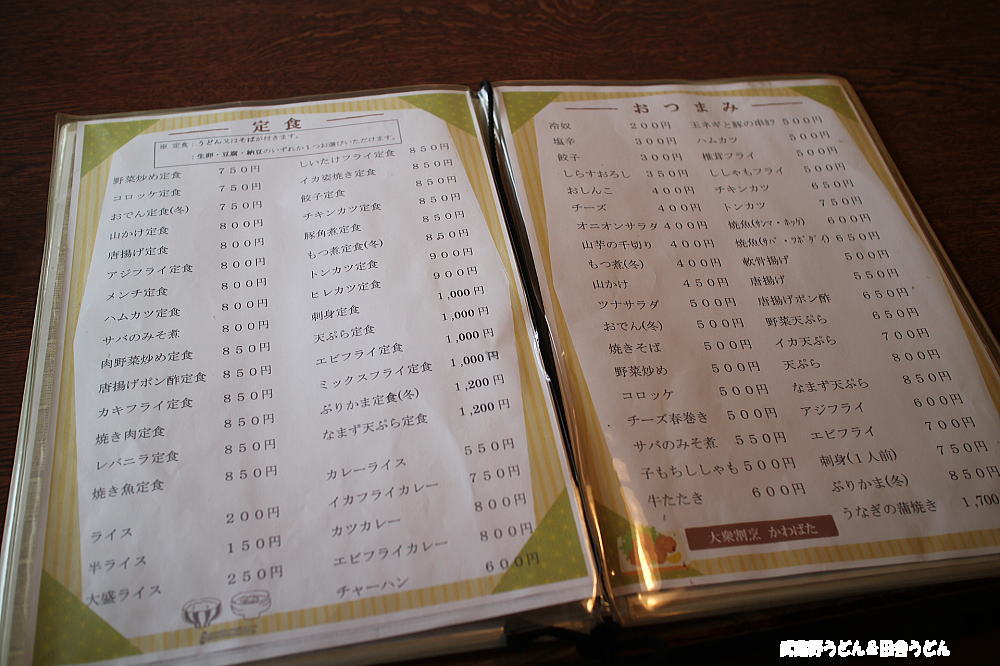 定食
※ 定食：うどん又はそばが付きます。
：生卵・豆腐・納豆のいずれか１つお選びいただけます。
野菜炒め定食 ７５０円
コロッケ定食 ７５０円
おでん定食(冬) ７５０円
山かけ定食 ８００円
唐揚げ定食 ８００円
アジフライ定食 ８００円
メンチ定食 ８００円
ハムカツ定食 ８００円
サバのみそ煮 ８００円
肉野菜炒め定食 ８５０円
唐揚げポン酢定食 ８５０円
カキフライ定食 ８５０円
焼き肉定食 ８５０円
レバニラ定食 ８５０円
焼き魚定食 ８５０円
ライス ２００円
半ライス １５０円
大盛ライス ２５０円
しいたけフライ定食 ８５０円
イカ姿焼き定食 ８５０円
餃子定食 ８５０円
チキンカツ定食 ８５０円
豚角煮定食 ８５０円
もつ煮定食(冬) ８５０円
トンカツ定食 ９００円
ヒレカツ定食 ９００円
刺身定食 1,000円
天ぷら定食 1,000円
エビフライ定食 1,000円
ミックスフライ定食 1,000円
ぶりかま定食(冬) 1,200円
なまず天ぷら定食 1,200円
カレーライス ５５０円
イカフライカレー ７５０円
カツカレー ８００円
エビフライカレー ８００円
チャーハン ６００円
おつまみ
冷奴 ２００円
塩辛 ３００円
餃子 ３００円
しらすおろし ３５０円
おしんこ ４００円
チーズ ４００円
オニオンサラダ ４００円
山芋の千切り ４００円
もつ煮(冬) ４００円
山かけ ４５０円
ツナサラダ ５００円
おでん(冬) ５００円
焼きそば ５００円
野菜炒め ５００円
コロッケ ５００円
チーズ春巻き ５００円
サバのみそ煮 ５５０円
子もちししゃも ５００円
牛たたき ６００円
玉ネギと豚の串ｶﾂ ５００円
ハムカツ ５００円
椎茸フライ ５００円
ししゃもフライ ５００円
チキンカツ ６５０円
トンカツ ７５０円
焼魚(ｻﾝﾏ・ﾎｯｹ) ６００円
焼魚(ｻﾊﾞ・ ６５０円
軟骨揚げ ５５０円
唐揚げ ５５０円
唐揚げポン酢 ６５０円
野菜天ぷら ６５０円
イカ天ぷら ７００円
天ぷら ８００円
なまず天ぷら ８５０円
アジフライ ６００円
エビフライ ７００円
刺身(１人前) ７５０円
ぶりかま(冬) ８５０円
うなぎの蒲焼き 1,700
大衆割烹 かわばた
武蔵野うどん＆田舎うどん